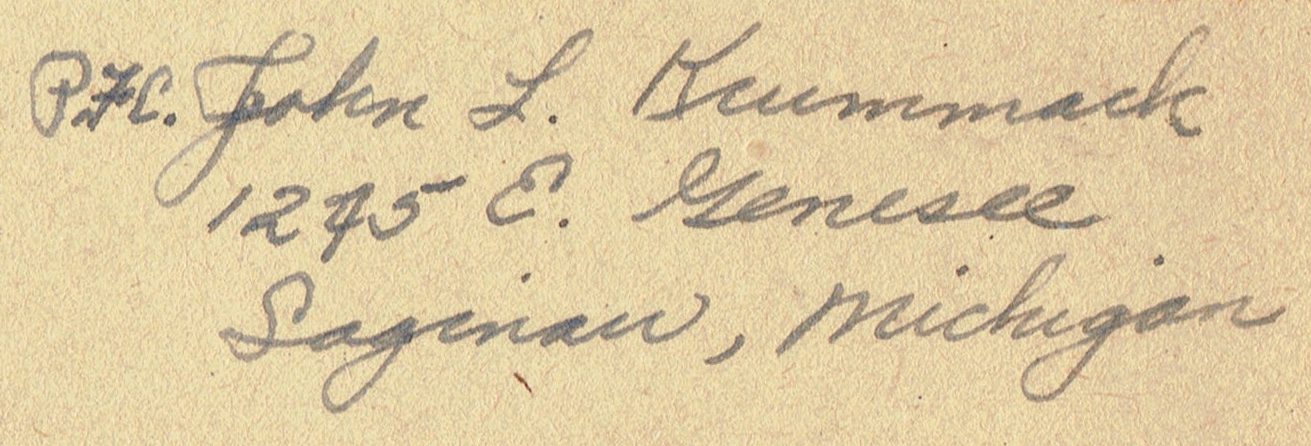 Pfc. John L. Krummack
1245 E. Genesee
Saginaw, Michigan